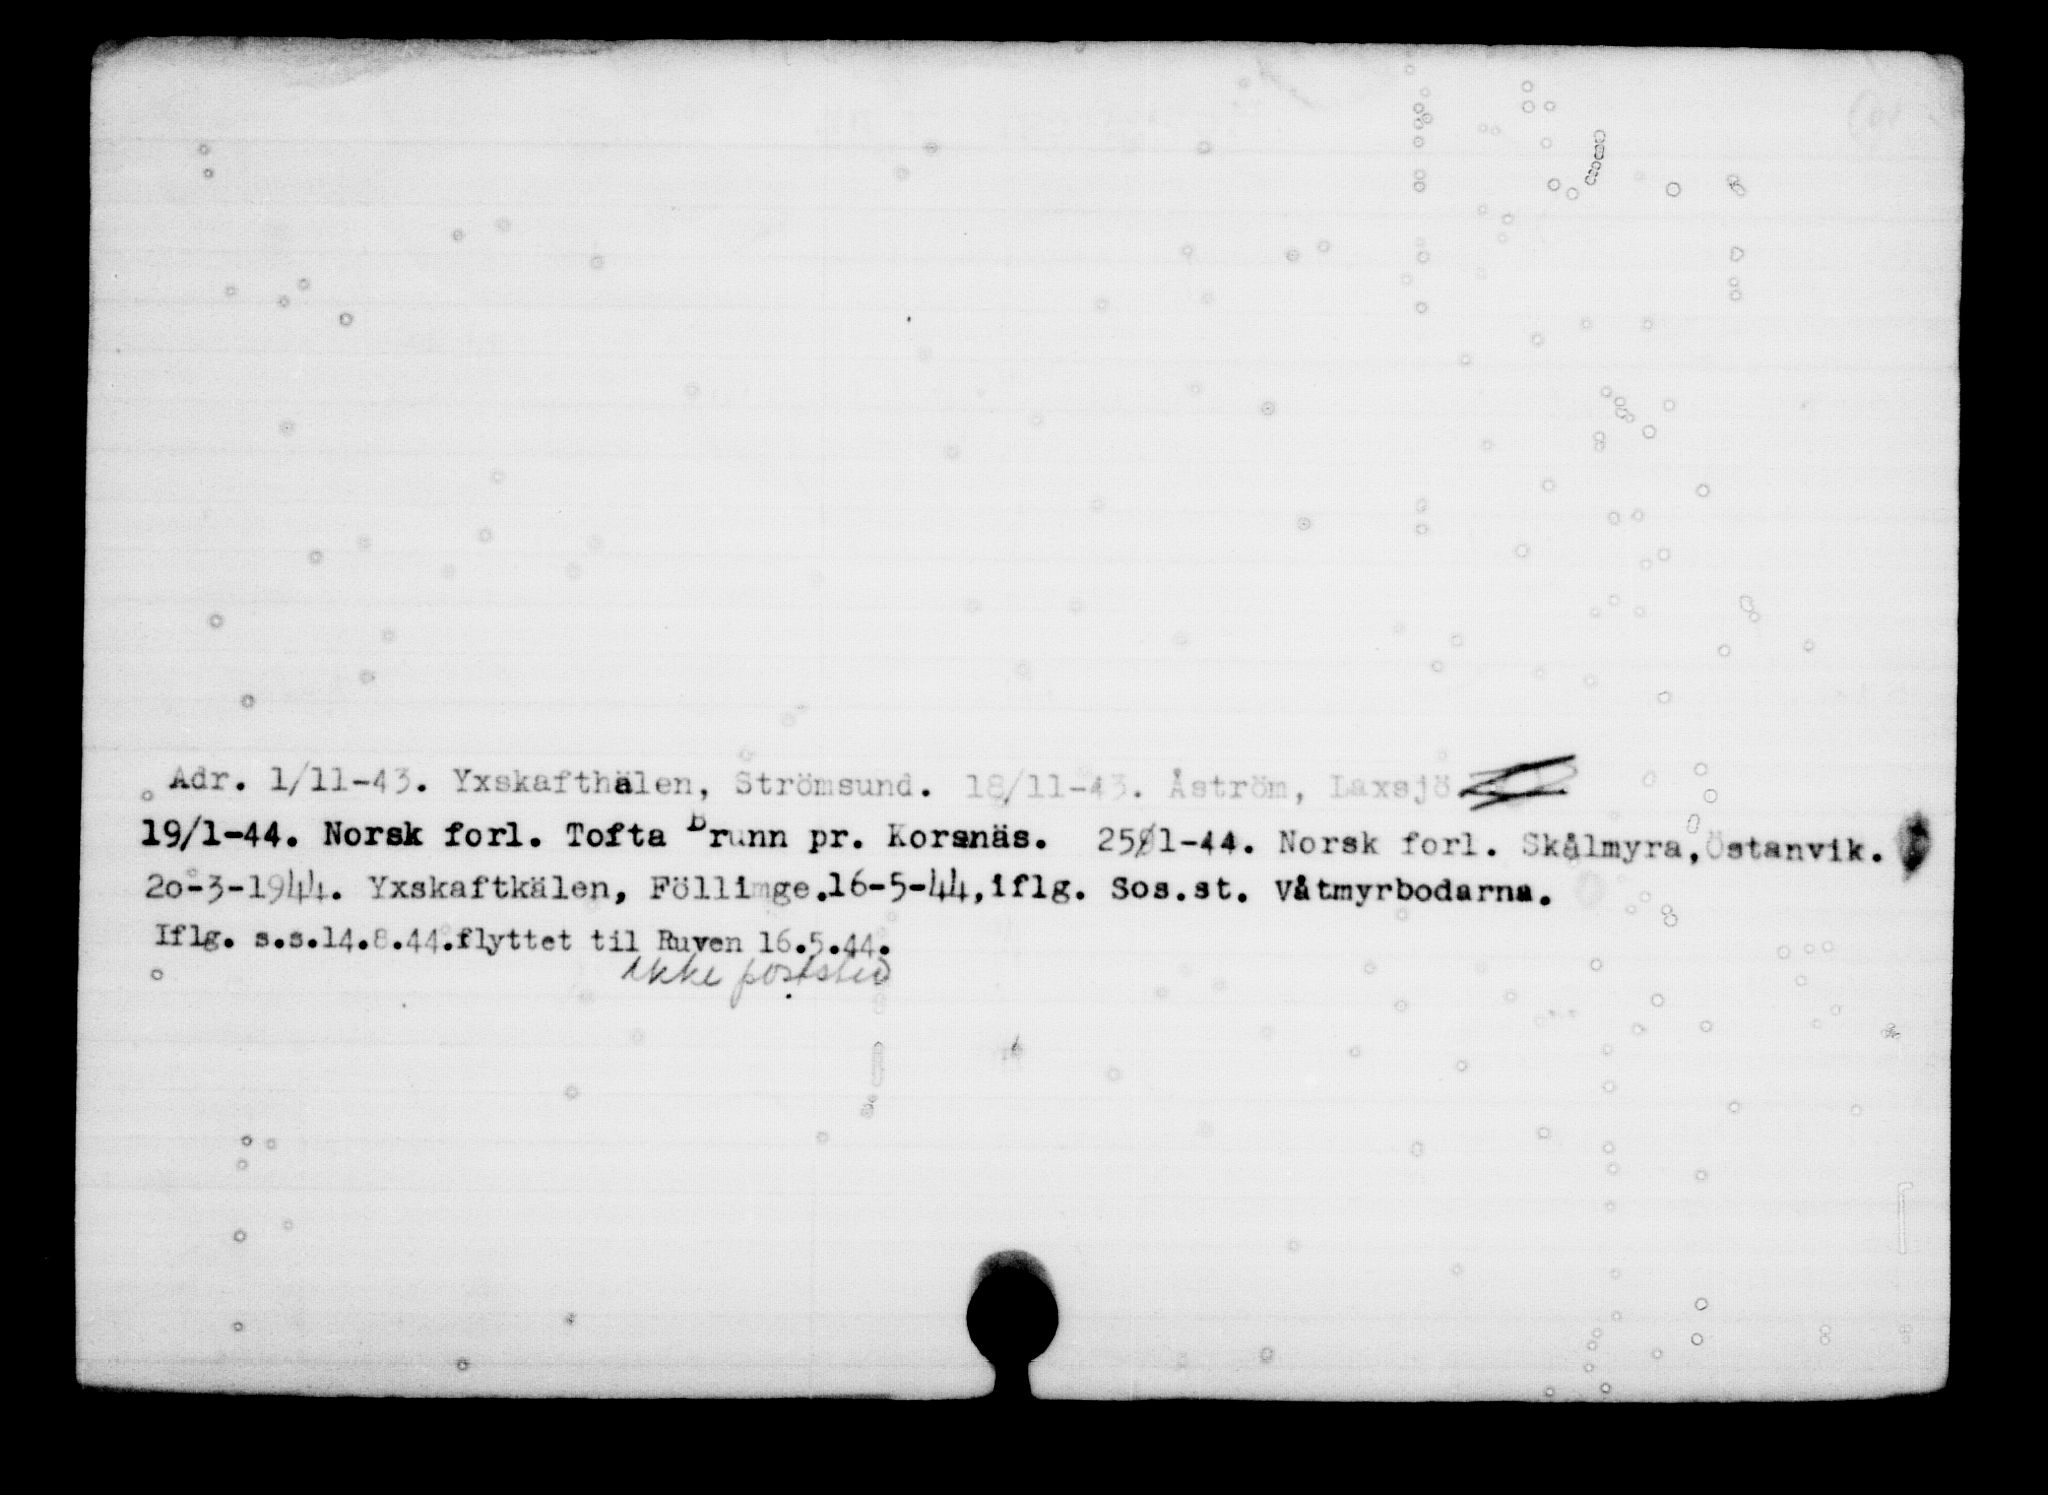 Adr. 1/11-43. Yxskafthälen, Strömsund. 18/11-43. Åström, Laxsjö
19/1-44. Norsk forl. Tofta Brunn pr. Korsnäs. 25/1-44. Norsk forl. Skålmyra, Östanvik.
2o-3-1944. Yxskaftkälen, Föllinge. 16-5-44, iflg. Sos.st. Våtmyrbodarna.
Iflg. s.s. 14.8.44. flyttet til Ruven 16.5.44.
ikke poststed